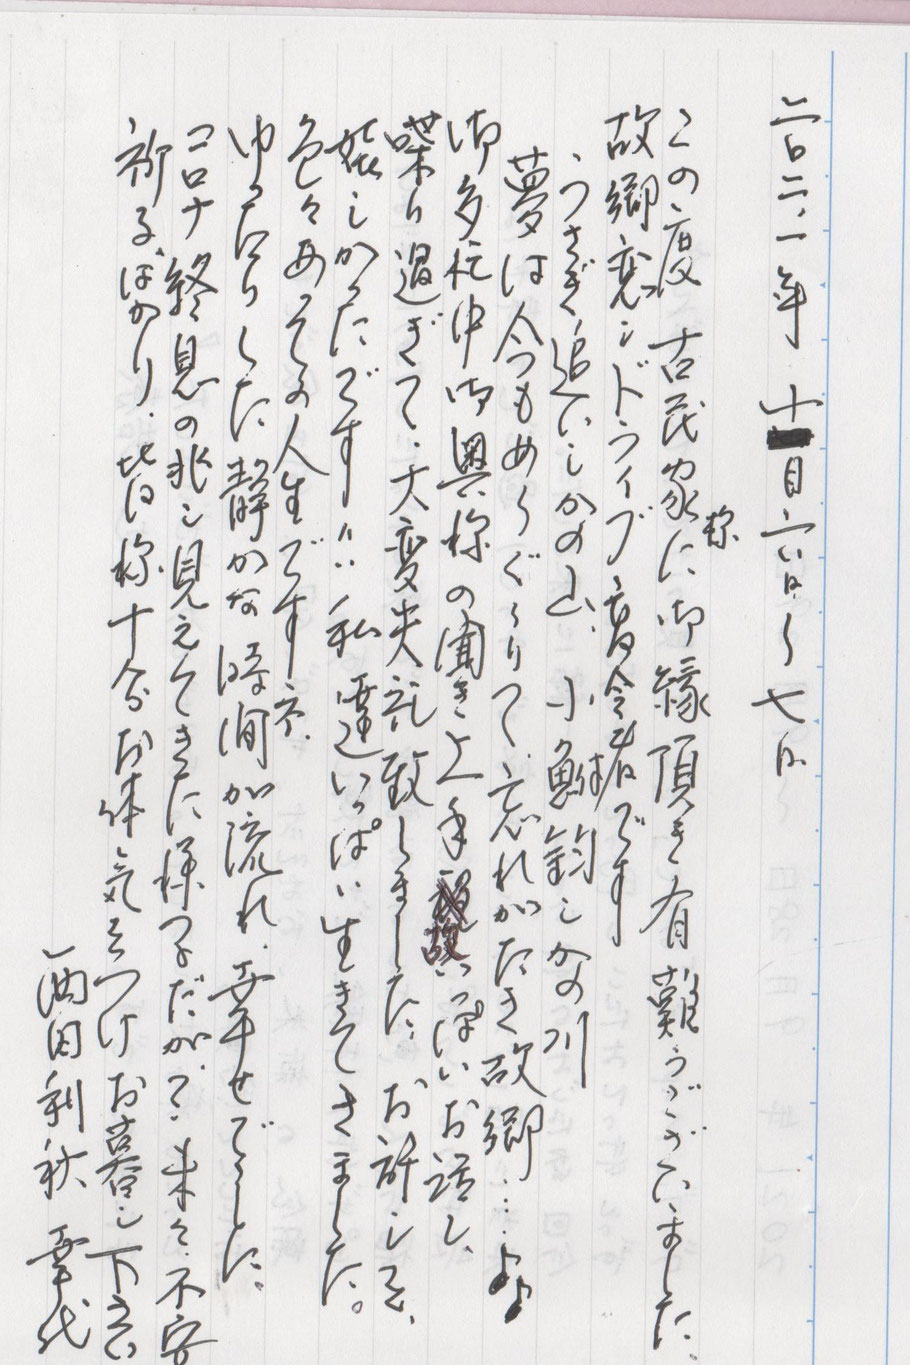 二〇二一年 十月六日〜七日
この度古民家様に御縁頂き有難うございました。
故郷恋しドライブ高令者です
うさぎ追いしかの山、小鮒釣しかの川
夢は今もめぐりて、忘れがたき故郷…♪♪
御多忙中御奥様の聞き上手 いっぱいお話し、
喋り過ぎて、大変失礼致しました、お許しを、
嬉しかったです!! 私達いっぱい生きてきました。
色々あってその人生ですネ。
ゆったりした静かな時間が流れ、幸せでした。
コロナ終息の兆し見えてきた様ですが、未々不安
祈るばかり、皆様十分お体気をつけお暮し下さい
利秋 幸代